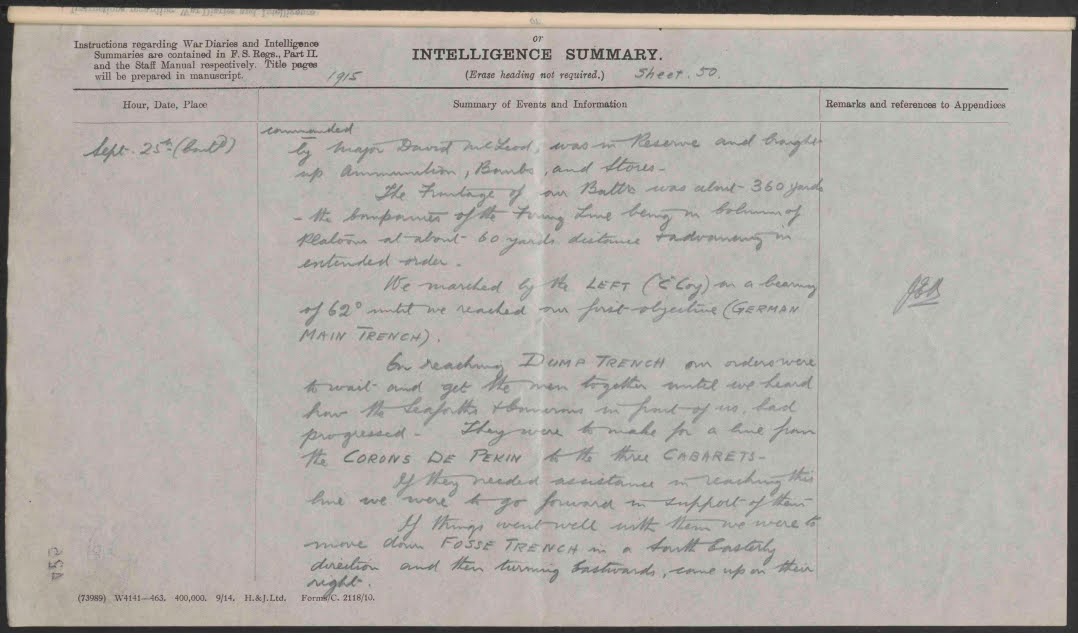 or
INTELLIGENCE SUMMARY.
(Erase heading not required.)
Instructions regarding War Diaries and Intelligence
Summaries are contained in F. S. Regs., Part II.
and the Staff Manual respectively. Title pages
will be prepared in manuscript.
1915
Sheet. 50.
Hour, Date, Place
Summary of Events and Information
Remarks and references to Appendices
Sept. 25th (Contd)
commanded
by Major David McLeod, was in Reserve and brought
up Ammunition, Bombs, and Stores -
The Frontage of our Battn was about 360 yards
- the Companies of the Firing Line being in Column of
Platoons at about 60 yards distance & advancing in
extended order.
We marched by the LEFT ("C" Coy) on a bearing
of 62° until we reached our first objective (GERMAN
MAIN TRENCH).
On reaching DUMP TRENCH our orders were
to wait and get the men together until we heard
how the Seaforths & Camerons in front of us, had
progressed - They were to make for a line from
the CORONS DE PEKIN to the three CABARETS -
If they needed assistance in reaching this
line we were to go forward in support of them
If things went well with them we were to
move down FOSSE TRENCH in a South Easterly
direction and then turning Eastwards, come up on their
right.
(73989) W4141—463. 400,000. 9/14. H.&J.Ltd. Forms/C. 2118/10.